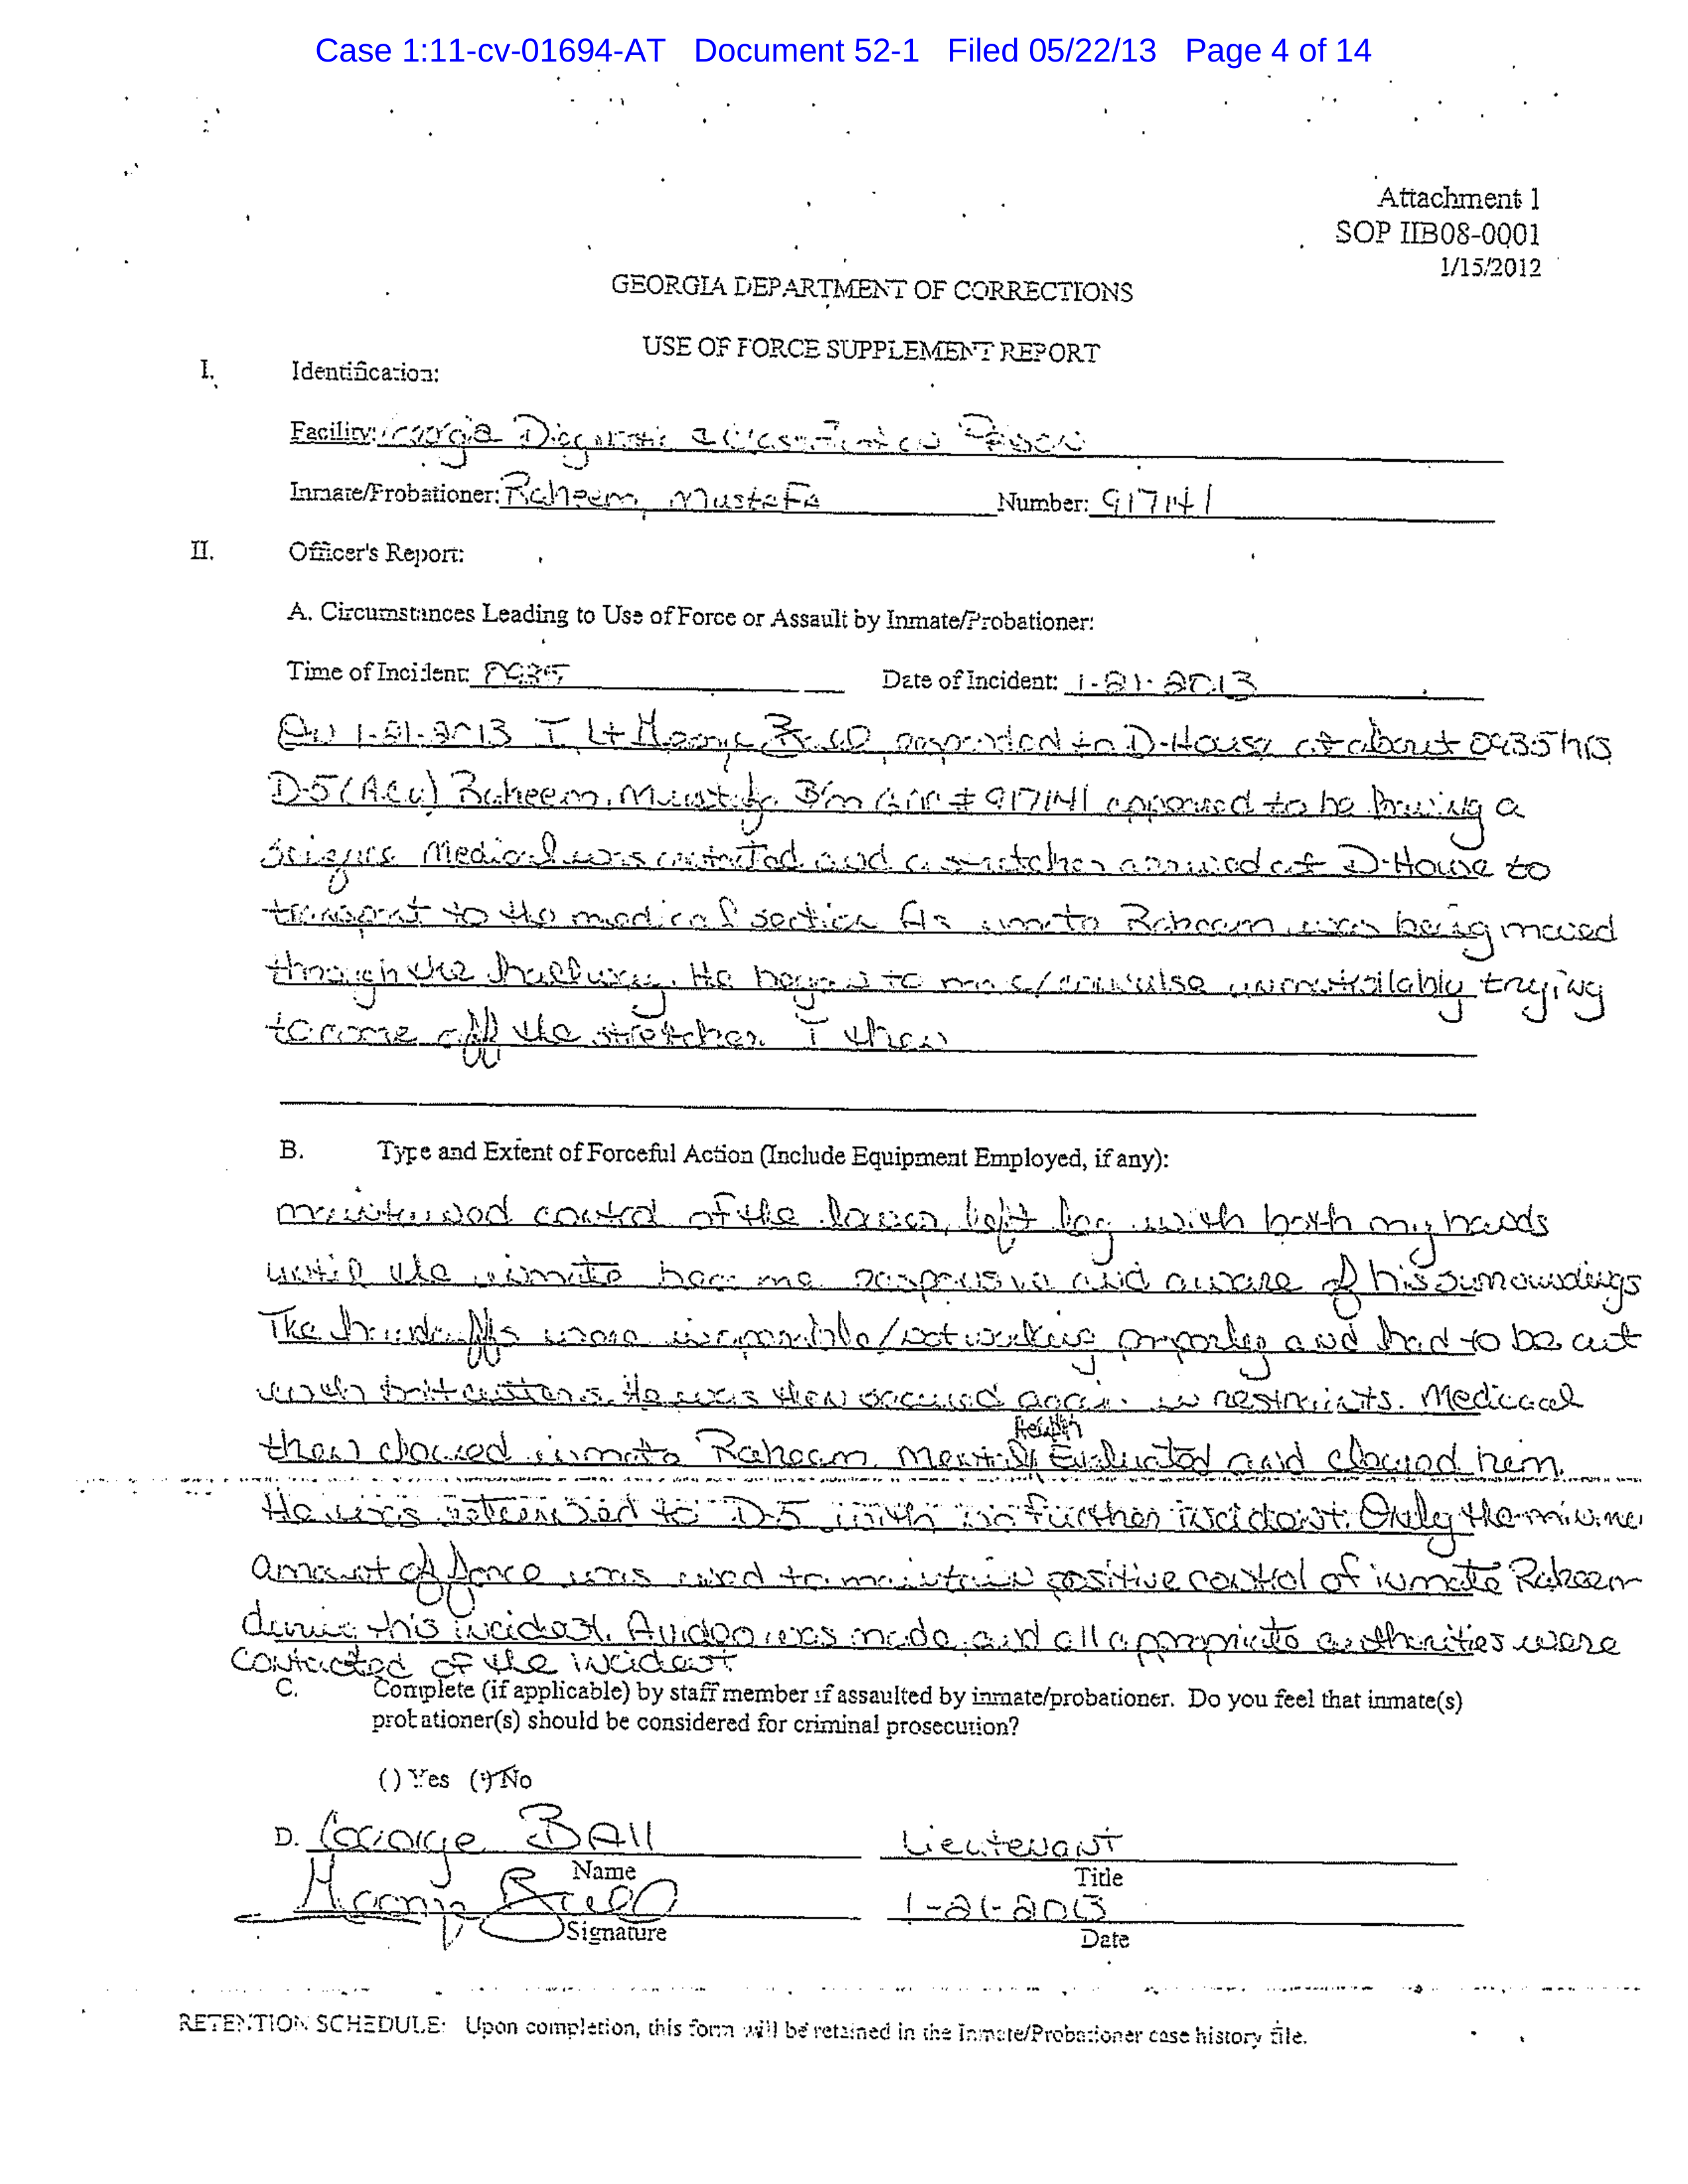 Case 1:11-cv-01694-AT Document 52-1 Filed 05/22/13 Page 4 of 14
Attachment 1
SOP IIB08-0001
1/15/2012
GEORGIA DEPARTMENT OF CORRECTIONS
USE OF FORCE SUPPLEMENT REPORT
I. Identification:
Facility: Georgia Diagnostic & Classification Prison
Inmate/Probationer: Raheem, Mustafa Number: 917141
II. Officer's Report:
A. Circumstances Leading to Use of Force or Assault by Inmate/Probationer:
Time of Incident: 0935 Date of Incident: 1-21-2013
On 1-21-2013 I Lt George Ball responded to D-House at about 0935 hrs
D-5 (Acu) Raheem, Mustafa B/m # 917141 appeared to be having a
Seizure Medical was contacted and a stretcher arrived at D-House to
transport to the medical section As inmate Raheem was being moved
through the hallway. He began to convulse uncontrollably trying
to come off the stretcher. I then
B. Type and Extent of Forceful Action (Include Equipment Employed, if any):
maintained control of the lower left leg with both my hands
until the inmate became responsive and aware of his surroundings
The handcuffs were inoperable/not working properly and had to be cut
with bolt cutters. He was then secured again in restraints. Medical
then cleared inmate Raheem. Mental Health Evaluated and cleared him.
He was returned to D-5 with no further incident. Only the
amount of force was used to maintain positive control of inmate Raheem
during this incident. A video was made and all appropriate authorities were
contacted of the incident
C. Complete (if applicable) by staff member if assaulted by inmate/probationer. Do you feel that inmate(s)
probationer(s) should be considered for criminal prosecution?
( ) Yes ( ) No
D. George BAll Lieutenant
Name Title
George Ball 1-21-2013
Signature Date
RETENTION SCHEDULE: Upon completion, this form will be retained in the Inmate/Probationer case history file.